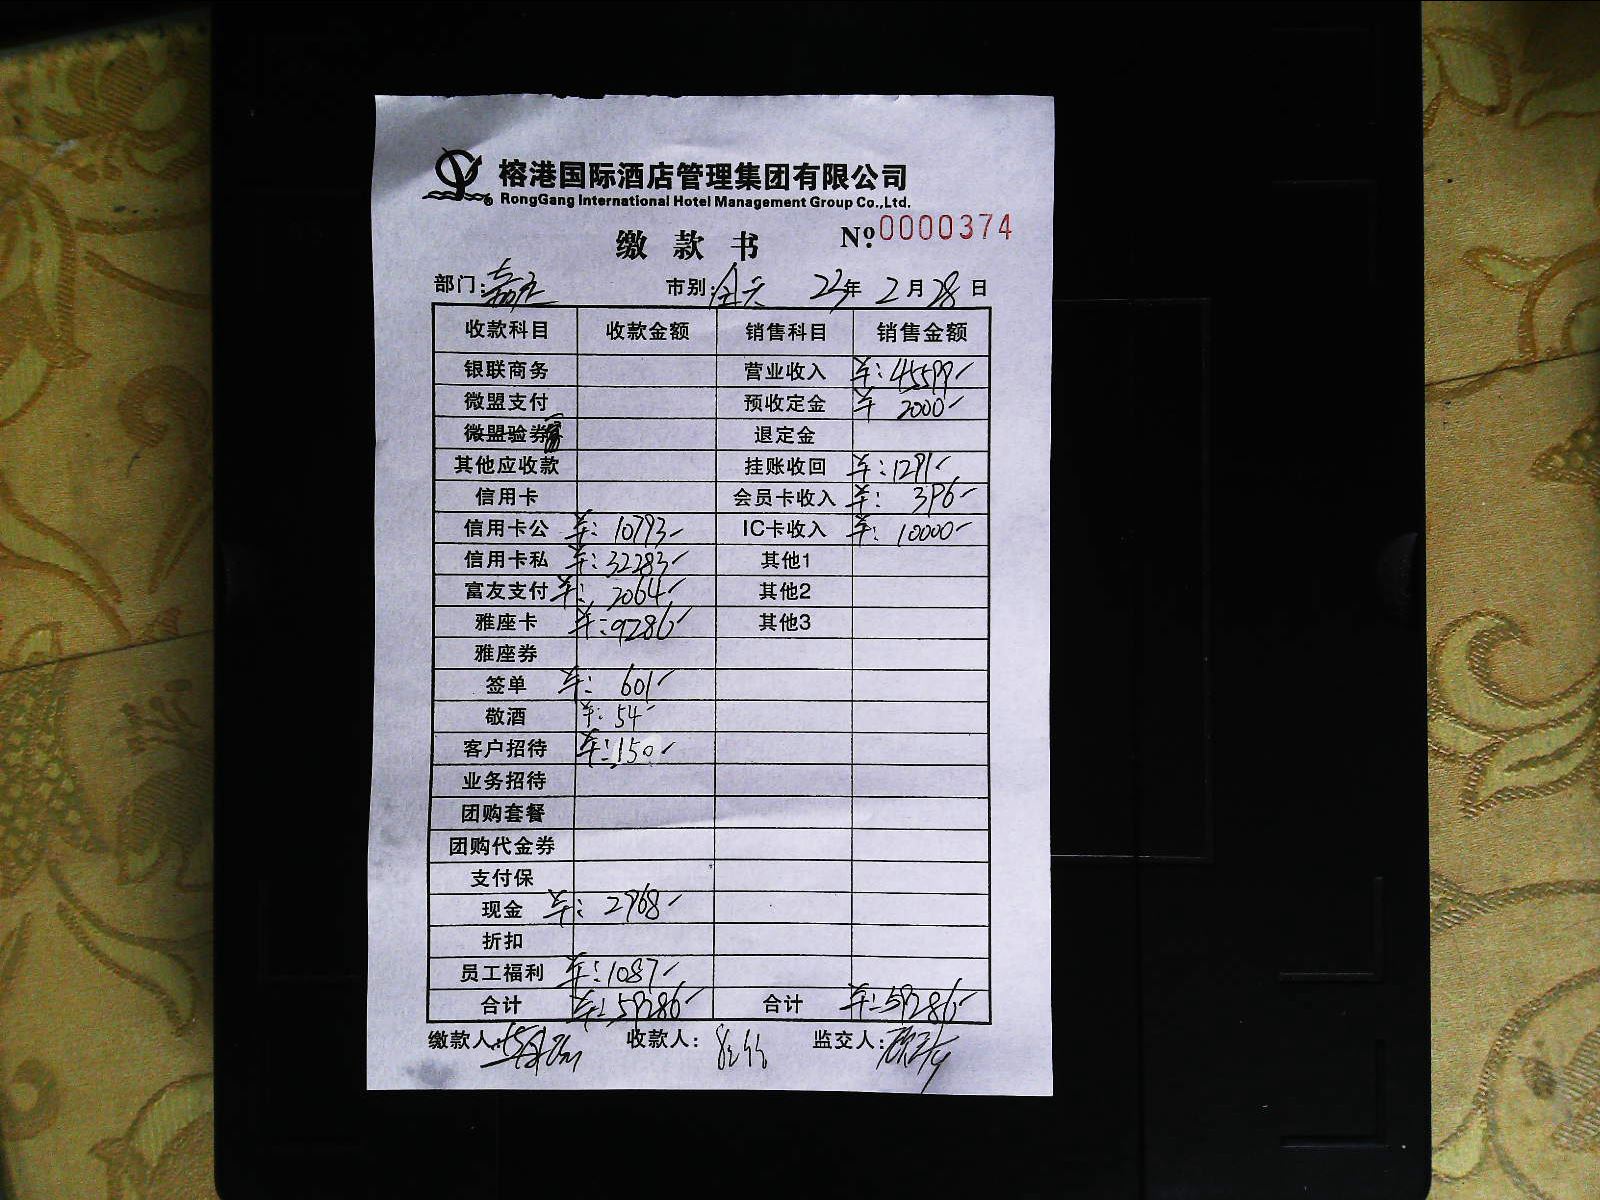 榕港国际酒店管理集团有限公司
RongGang International Hotel Management Group Co.,Ltd.
缴款书 Nº:0000374
部门: 市别:全天 23年 2月 28日
收款科目 收款金额 销售科目 销售金额
银联商务 营业收入 ¥:45599
微盟支付 预收定金 ¥ 2000
微盟验券 退定金
其他应收款 挂账收回 ¥:1291
信用卡 会员卡收入 ¥: 396
信用卡公 ¥: 10793 IC卡收入 ¥: 10000
信用卡私 ¥:32283 其他1
富友支付 ¥: 2064 其他2
雅座卡 ¥:9286 其他3
雅座券
签单 ¥: 601
敬酒 ¥: 54
客户招待 ¥:150
业务招待
团购套餐
团购代金券
支付保
现金 ¥: 2968
折扣
员工福利 ¥:1087
合计 ¥:59286 合计 ¥:59286
缴款人: 收款人: 监交人: